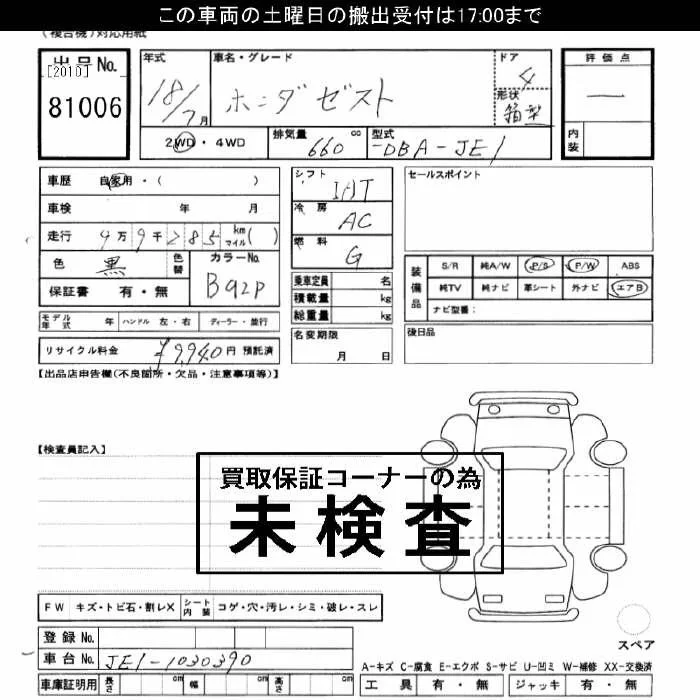 この車両の土曜日の搬出受付は17:00まで
(複合機)対応用紙
出品No. [2010] 81006
年式 18/7月
車名・グレード ホンダゼスト
ドア 4
形状 箱型
評価点 —
内装
2WD・4WD
排気量 660 cc
型式 -DBA-JE1
車歴 自家用・( )
車検 年 月
走行 9万9千285 km マイル( )
色 黒 色替 カラーNo. B92P
保証書 有・無
シフト IAT
冷房 AC
燃料 G
乗車定員 名
積載量 kg
総重量 kg
セールスポイント
装備品 S/R 純A/W P/S P/W ABS
純TV 純ナビ 革シート 外ナビ エアB
ナビ型番:
モデル年式 年 ハンドル 左・右 ディーラー・並行
名変期限 月 日
後日品
リサイクル料金 ¥9,940円 預託済
【出品店申告欄(不良箇所・欠品・注意事項等)】
【検査員記入】
買取保証コーナーの為
未検査
FW キズ・トビ石・割レX シート内装 コゲ・穴・汚レ・シミ・破レ・スレ
登録No.
車台No. JE1-1030390
スペア
A-キズ C-腐食 E-エクボ S-サビ U-凹ミ W-補修 XX-交換済
車庫証明用 長さ cm 幅 cm 高さ cm
工具 有・無 ジャッキ 有・無